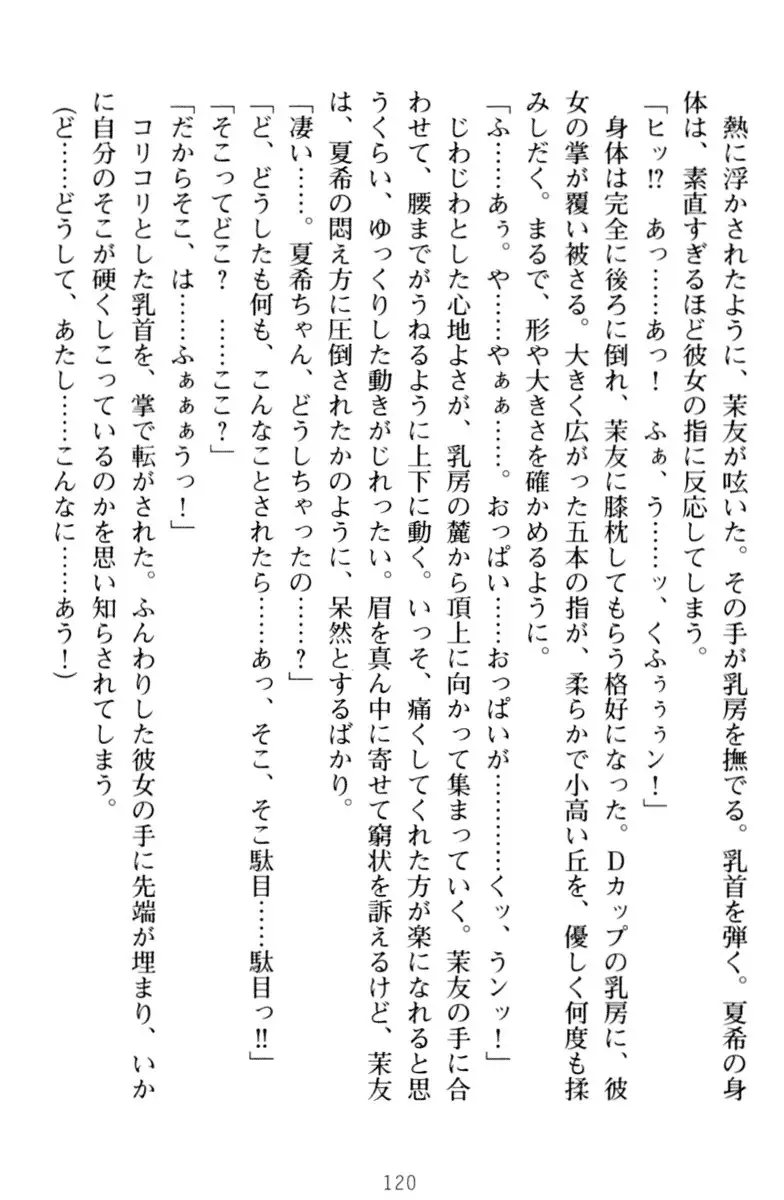 熱に浮かされたように、茉友が呟いた。その手が乳房を撫でる。乳首を弾く。夏希の身
体は、素直すぎるほど彼女の指に反応してしまう。
「ヒッ!? あっ……あっ! ふぁ、う……ッ、くふぅぅぅン!」
身体は完全に後ろに倒れ、茉友に膝枕してもらう格好になった。Dカップの乳房に、彼
女の掌が覆い被さる。大きく広がった五本の指が、柔らかで小高い丘を、優しく何度も揉
みしだく。まるで、形や大きさを確かめるように。
「ふ……あぅ。や……やぁぁ……。おっぱい……おっぱいが…………くッ、うンッ!」
じわじわとした心地よさが、乳房の麓から頂上に向かって集まっていく。茉友の手に合
わせて、腰までがうねるように上下に動く。いっそ、痛くしてくれた方が楽になれると思
うくらい、ゆっくりした動きがじれったい。眉を真ん中に寄せて窮状を訴えるけど、茉友
は、夏希の悶え方に圧倒されたかのように、呆然とするばかり。
「凄い……。夏希ちゃん、どうしちゃったの……?」
「ど、どうしたも何も、こんなことされたら……あっ、そこ、そこ駄目……駄目っ!!」
「そこってどこ? ……ここ?」
「だからそこ、は……ふぁぁぁうっ!」
コリコリとした乳首を、掌で転がされた。ふんわりした彼女の手に先端が埋まり、いか
に自分のそこが硬くしこっているのかを思い知らされてしまう。
(ど……どうして、あたし……こんなに……あう!)
120